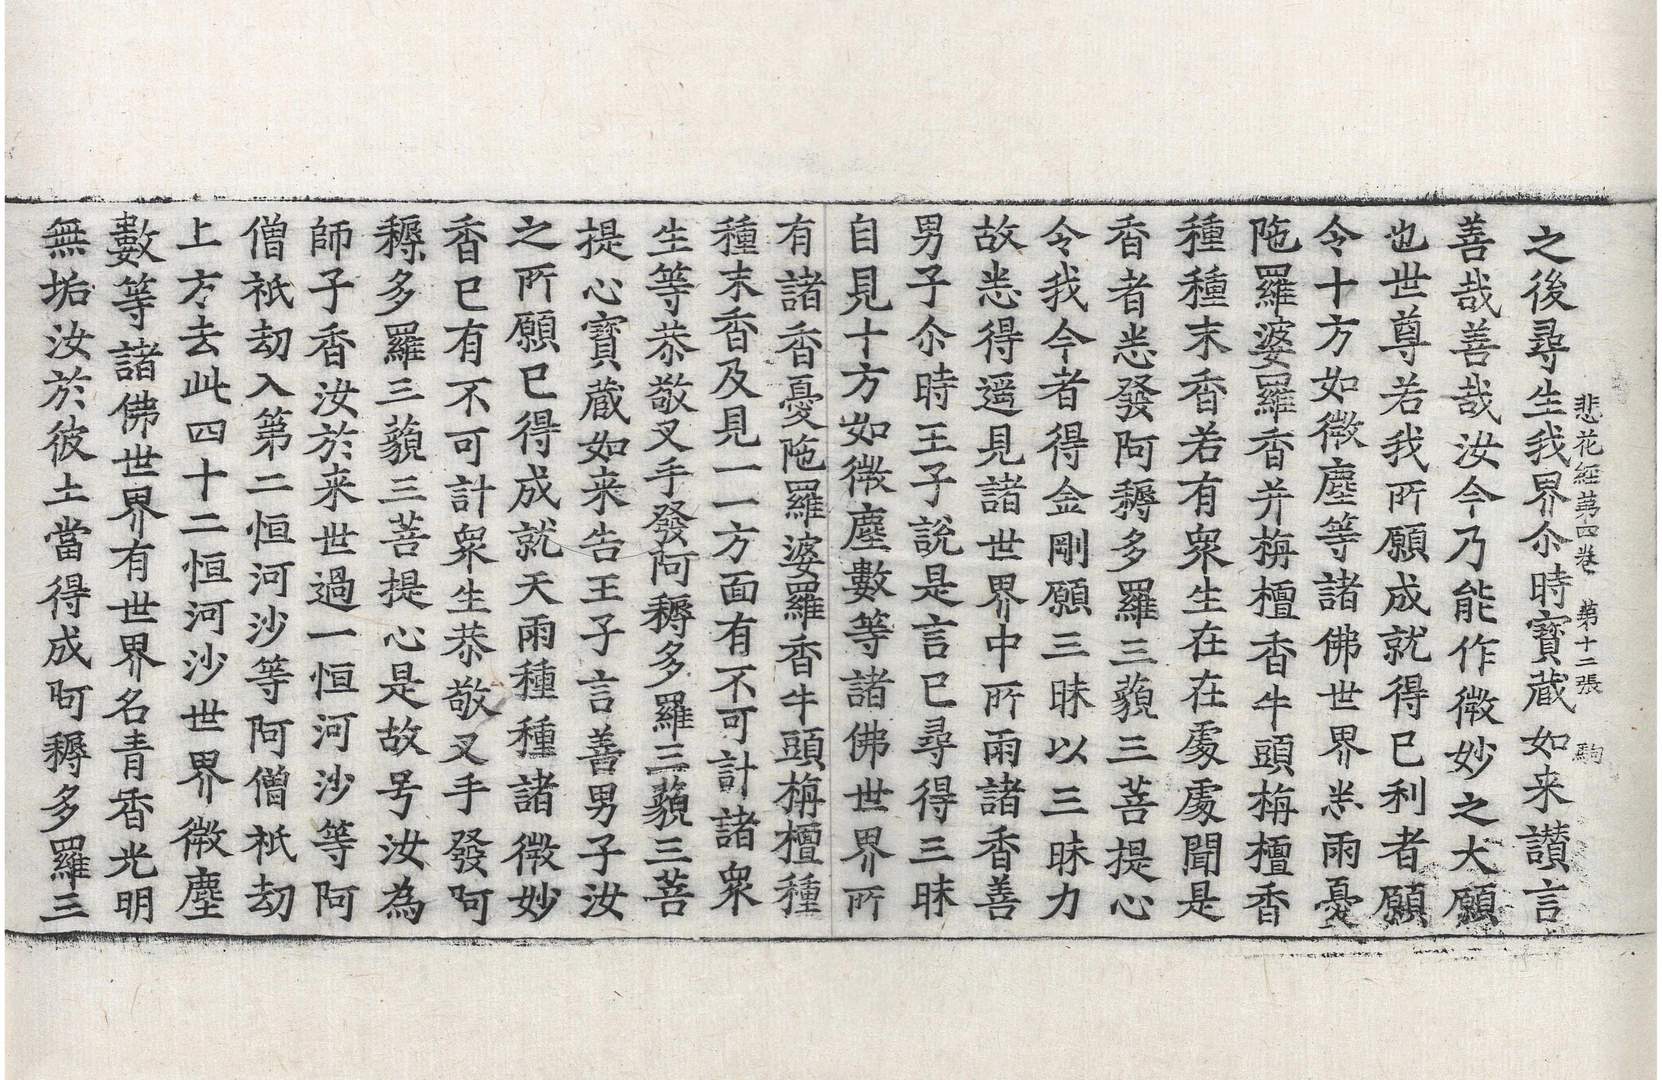 悲花経第四卷 第十二張 駒
之後尋生我界尒時寶蔵如来讃言
善哉善哉汝今乃能作微妙之大願
也世尊若我所願成就得已利者願
令十方如微塵等諸佛世界悉雨憂
陁羅婆羅香并栴檀香牛頭栴檀香
種種末香若有衆生在在處處聞是
香者悉發阿耨多羅三藐三菩提心
令我今者得金剛願三昧以三昧力
故悉得遥見諸世界中所雨諸香善
男子尒時王子說是言已尋得三昧
自見十方如微塵數等諸佛世界所
有諸香憂陁羅婆羅香牛頭栴檀種
種末香及見一一方面有不可計諸衆
生等恭敬叉手發阿耨多羅三藐三菩
提心寶蔵如来告王子言善男子汝
之所願已得成就天雨種種諸微妙
香已有不可計衆生恭敬叉手發阿
耨多羅三藐三菩提心是故号汝為
師子香汝於来世過一恒河沙等阿
僧祇劫入第二恒河沙等阿僧祇劫
上方去此四十二恒河沙世界微塵
數等諸佛世界有世界名青香光明
無垢汝於彼土當得成阿耨多羅三